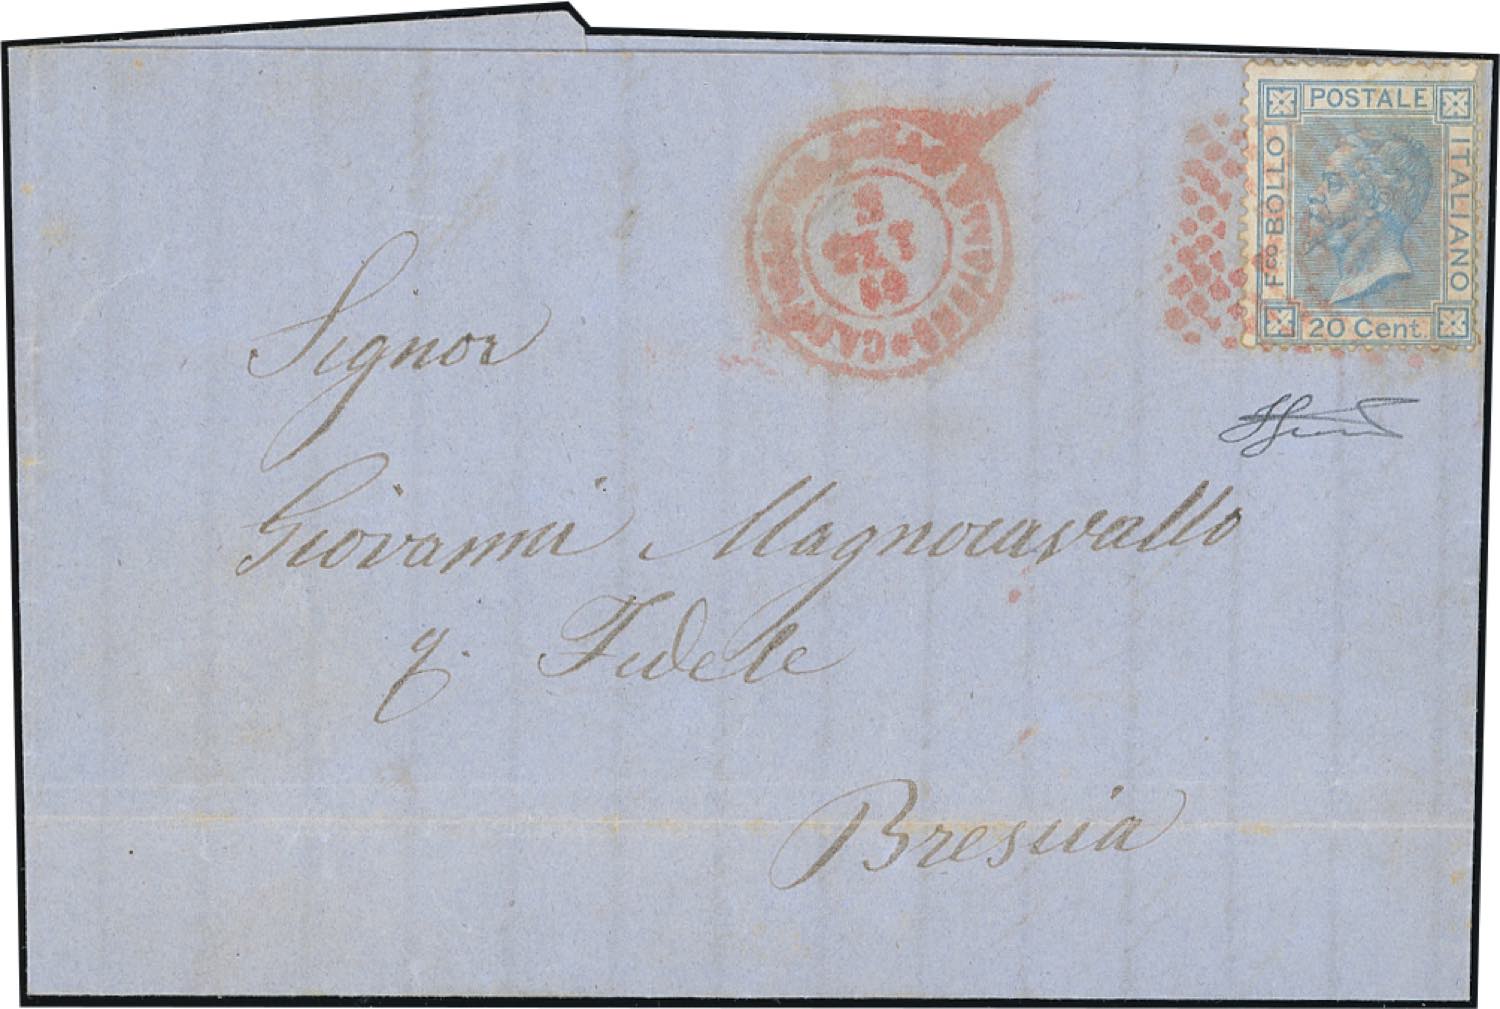 POSTALE
Fco BOLLO
ITALIANO
20 Cent.
Signor
Giovanni Magnocavallo
q. Fidele
Brescia